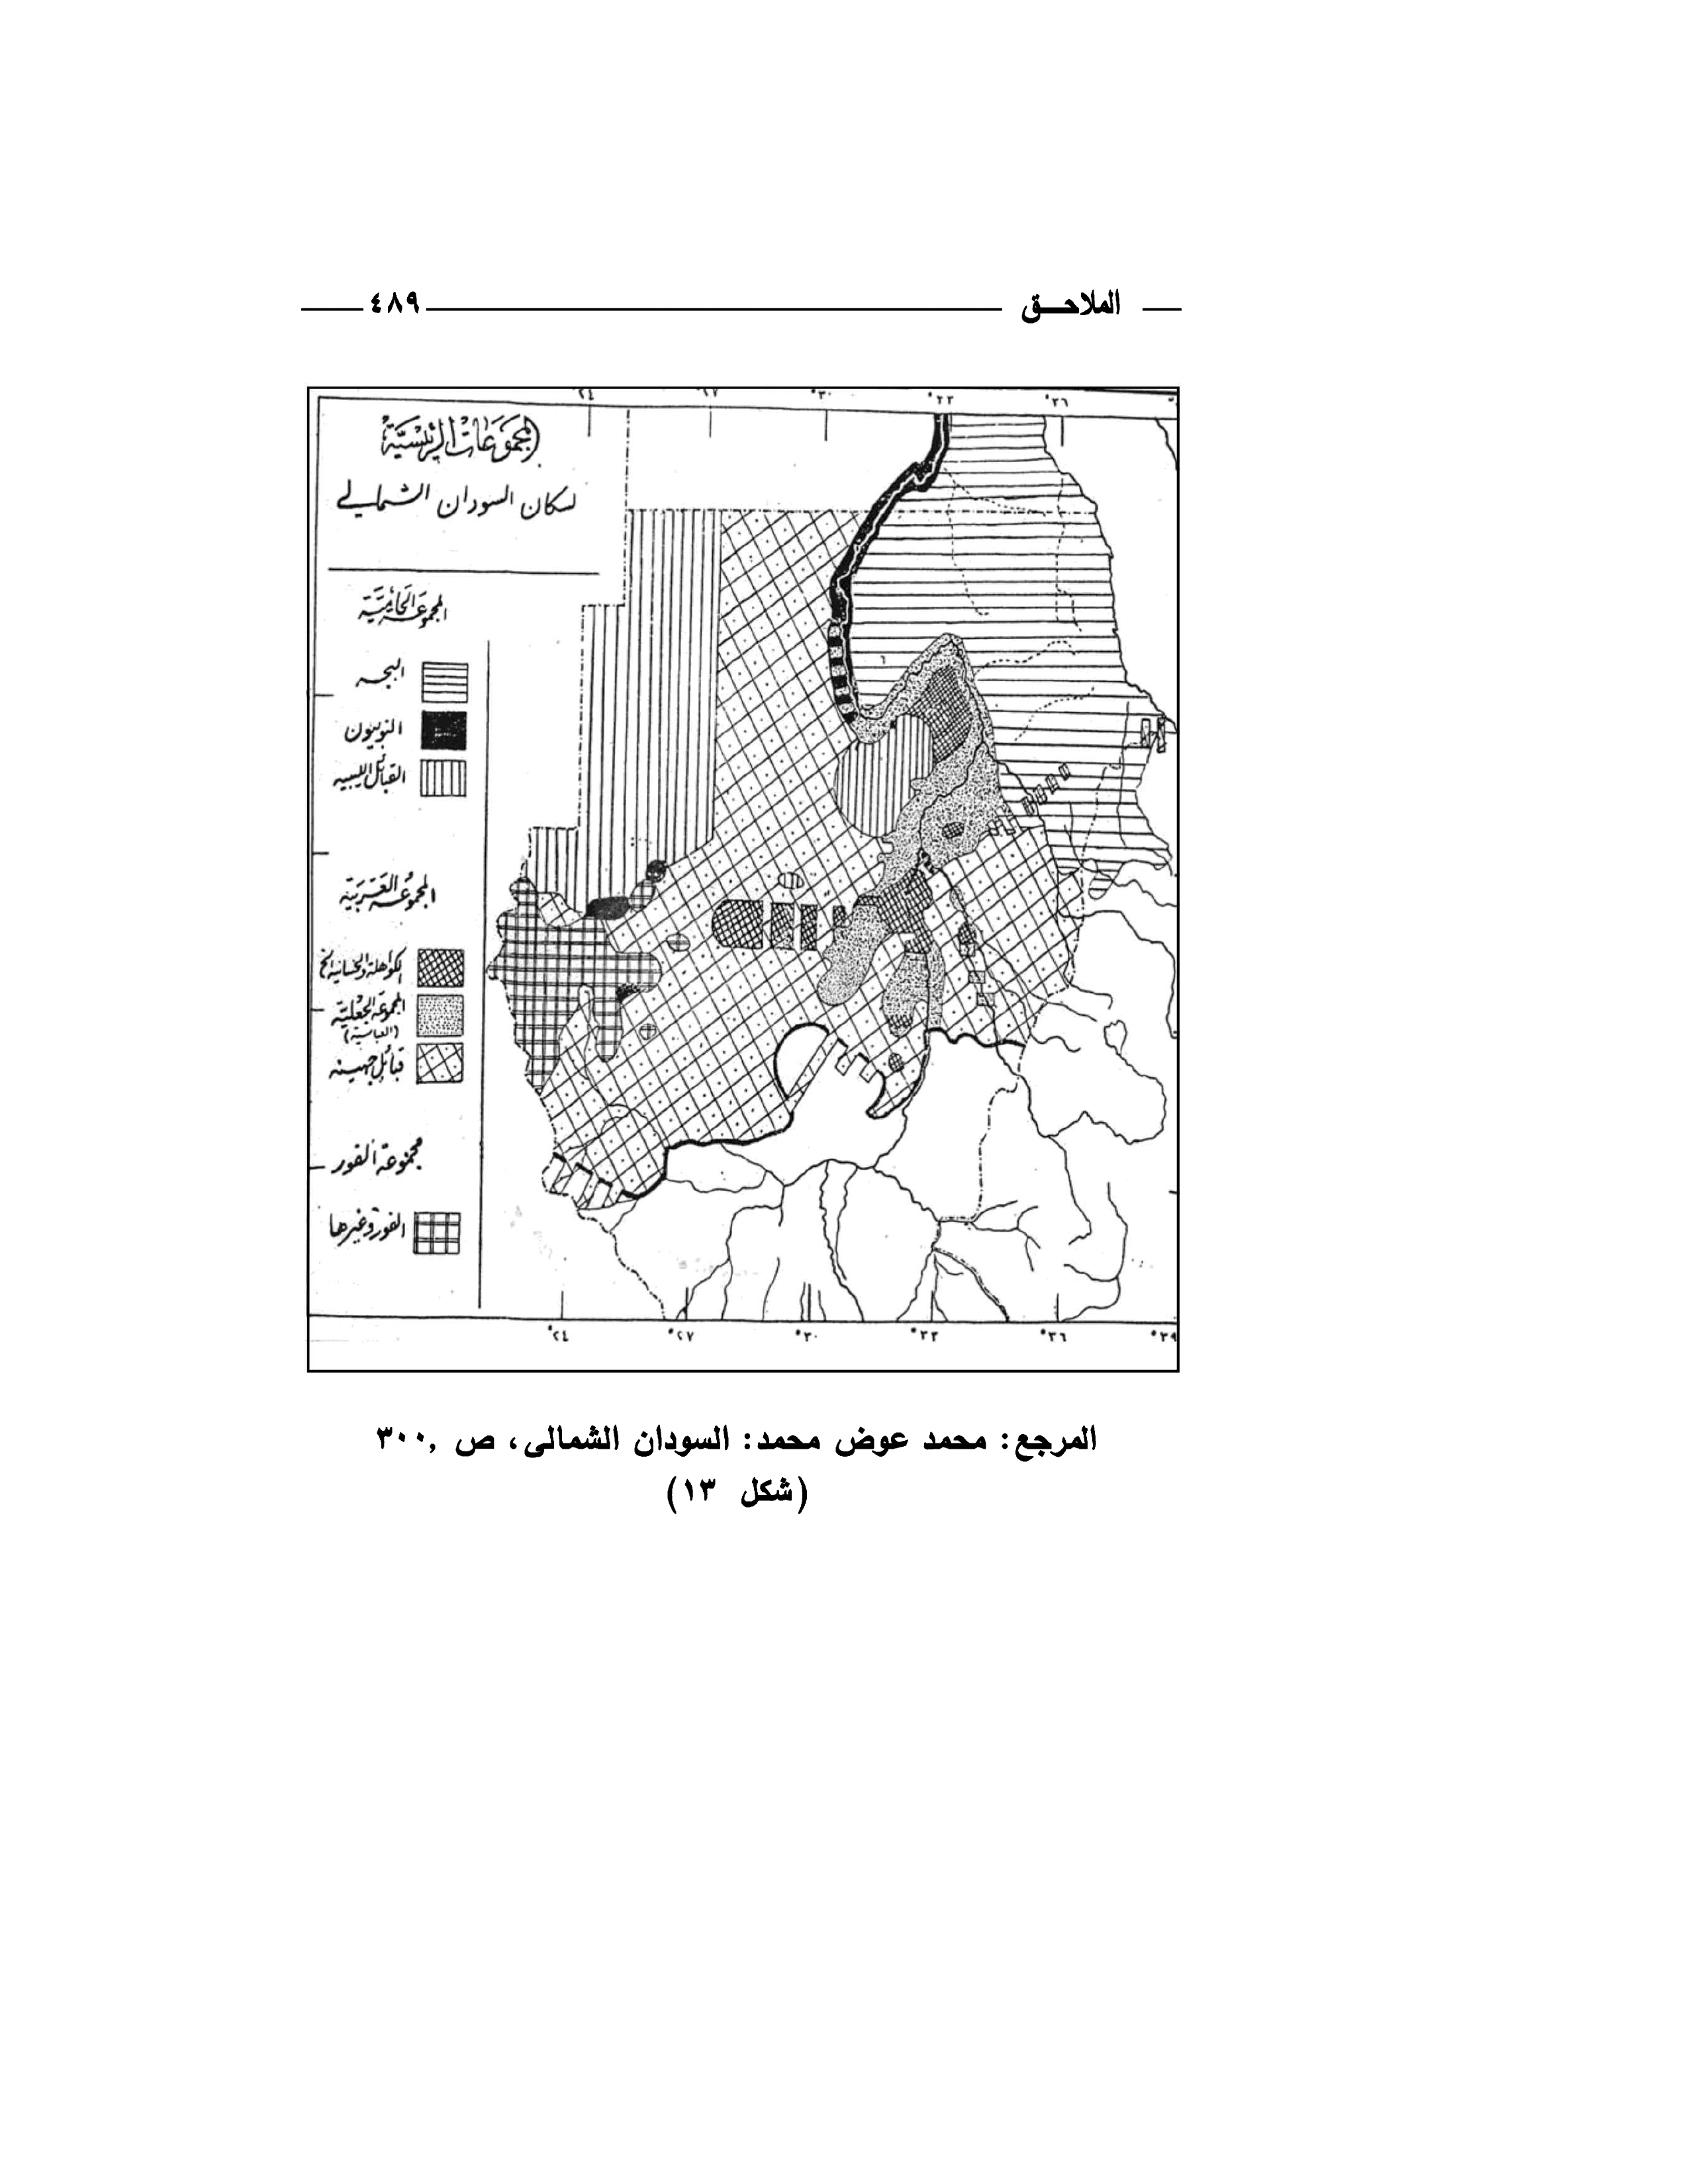 الملاحـــق ٤٨٩
٢٤ ٢٧ ٣٠° ٣٣° ٣٦°
المجموعات الرئيسية
لسكان السودان الشمالي
المجموعة الحامية
البجه
النوبيون
القبائل الليبيه
المجموعة العربية
الكواهلة والحسانية الخ
المجموعة الجعلية
(العباسية)
قبائل جهينه
مجموعة الفور
الفور وغيرها
٢٤° ٢٧° ٣٠° ٣٣° ٣٦° ٣٩°
المرجع: محمد عوض محمد: السودان الشمالى، ص ,٣٠٠
(شكل ١٣)